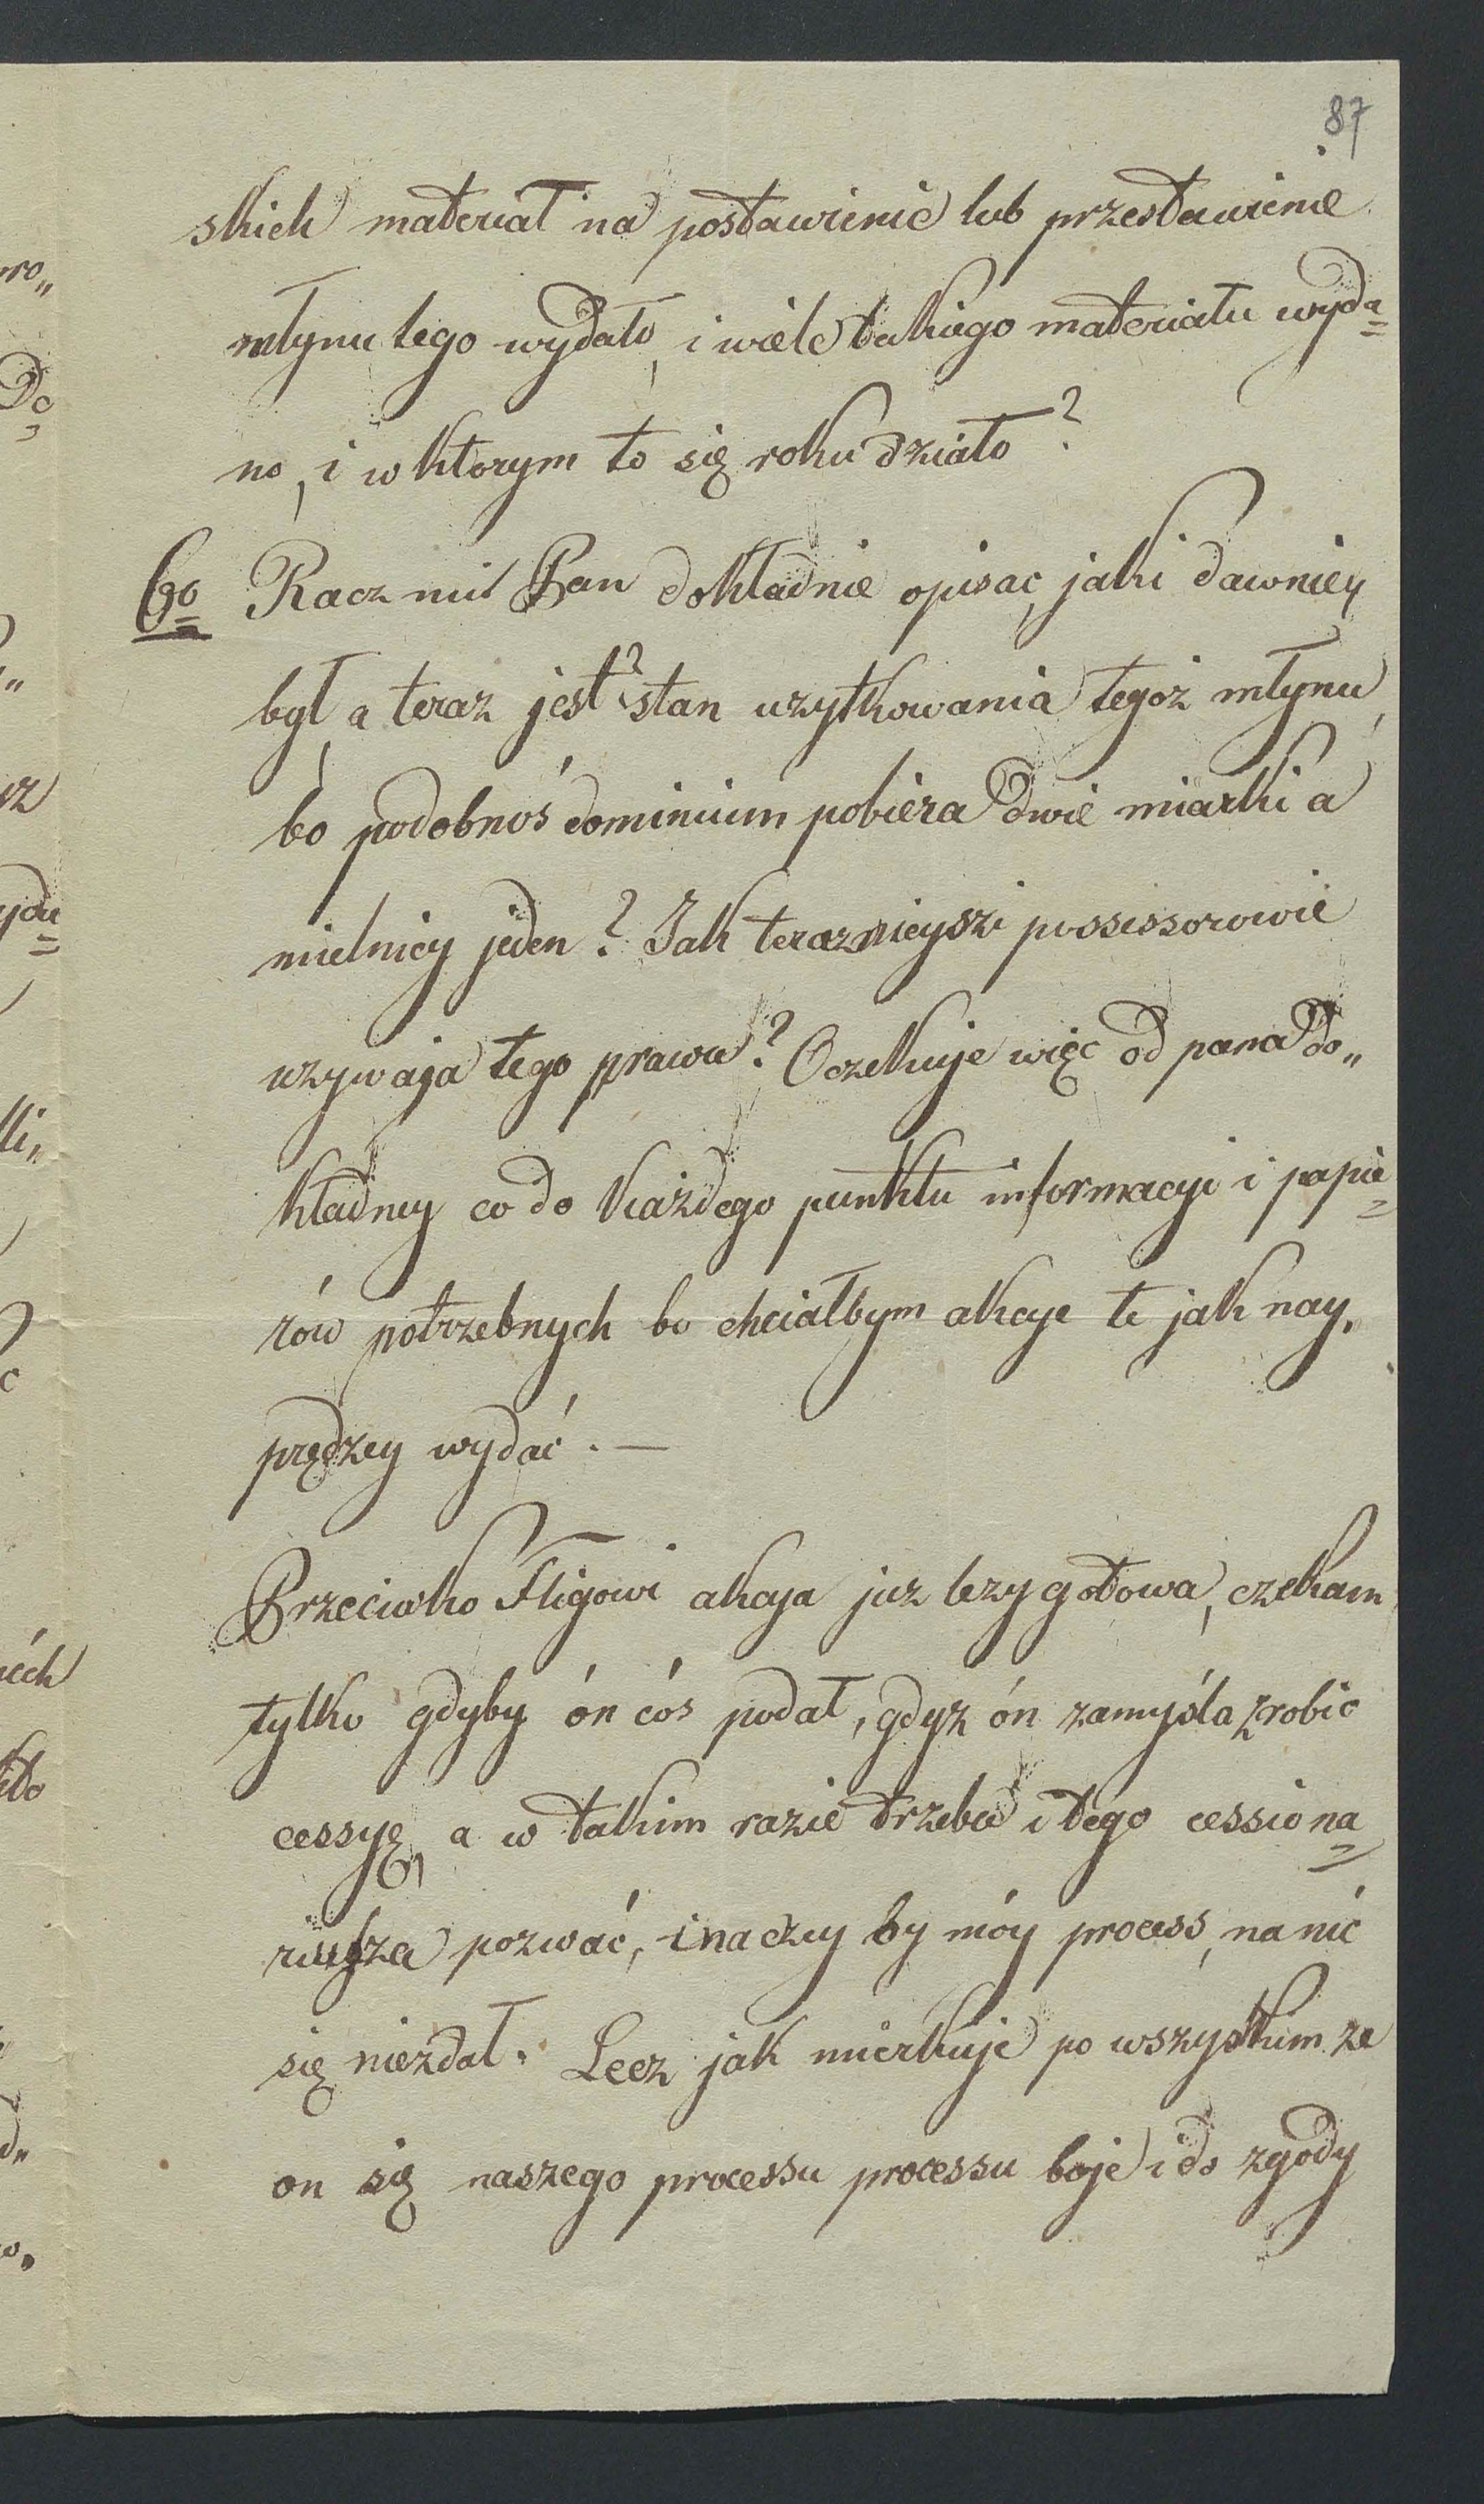 87
skich materiał na postawienie lub przestawienie
młynu tego wydało, i wiele takiego materiału wyda=
no, i w ktorym to się roku działo?
6o Racz mi Pan dokładnie opisac, jaki dawniey
był, a teraz jest? stan uzytkowania tegoż młynu,
bo podobnoś dominium pobiera dwie miarki a
mielnicy jeden? Jak teraznieyszi possessorowie
uzywaja tego prawa? Oczekuje więc od pana do„
kładney co do każdego punktu informacyi i papie=
rów potrzebnych bo chciałbym akcye te jak nay„
prędzey wydać. —
Przeciwko Fligowi akcya juz lezy gotowa, czekam
tylko gdyby ón cós podał, gdyz ón zamyśla zrobic
cessyę, a w takim razie trzeba i tego cessiona=
riusza pozwać, inaczey by móy process, na nić
się niezdał. Lecz jak mierkuje po wszystkim ze
on się naszego processu processu boje i do zgody